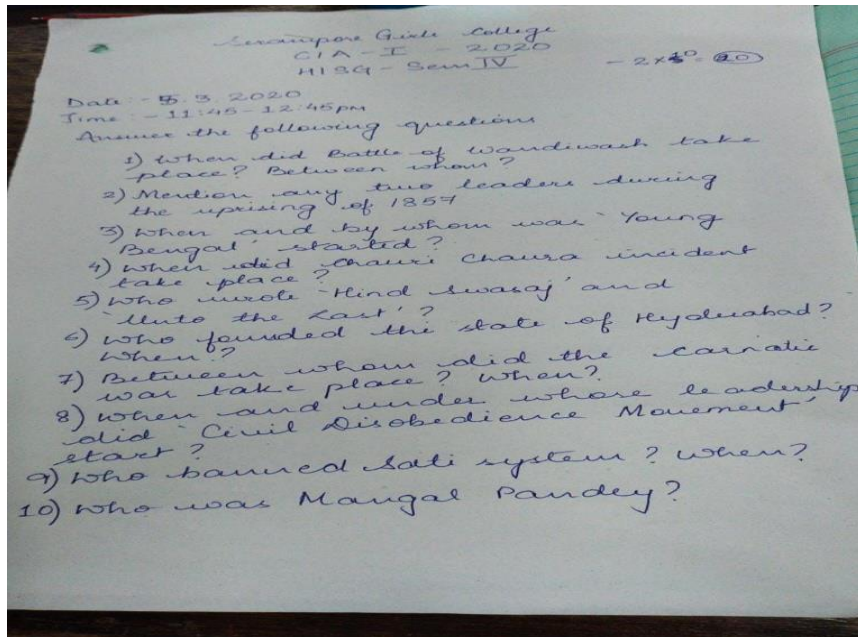 Serampore Girls College
CIA - I - 2020
HISG - Sem IV - 2x10 = 20
Date: - 5.3.2020
Time: - 11:45 - 12:45pm
Answer the following questions
1) When did Battle of Wandiwash take
place? Between whom?
2) Mention any two leaders during
the uprising of 1857
3) When and by whom was 'Young
Bengal' started?
4) When did Chauri Chaura incident
take place?
5) Who wrote 'Hind Swaraj' and
'Unto the Last'?
6) Who founded the state of Hyderabad?
When?
7) Between whom did the carnatic
war take place? When?
8) When and under whose leadership
did 'Civil Disobedience Movement'
start?
9) Who banned Sati system? When?
10) Who was Mangal Pandey?